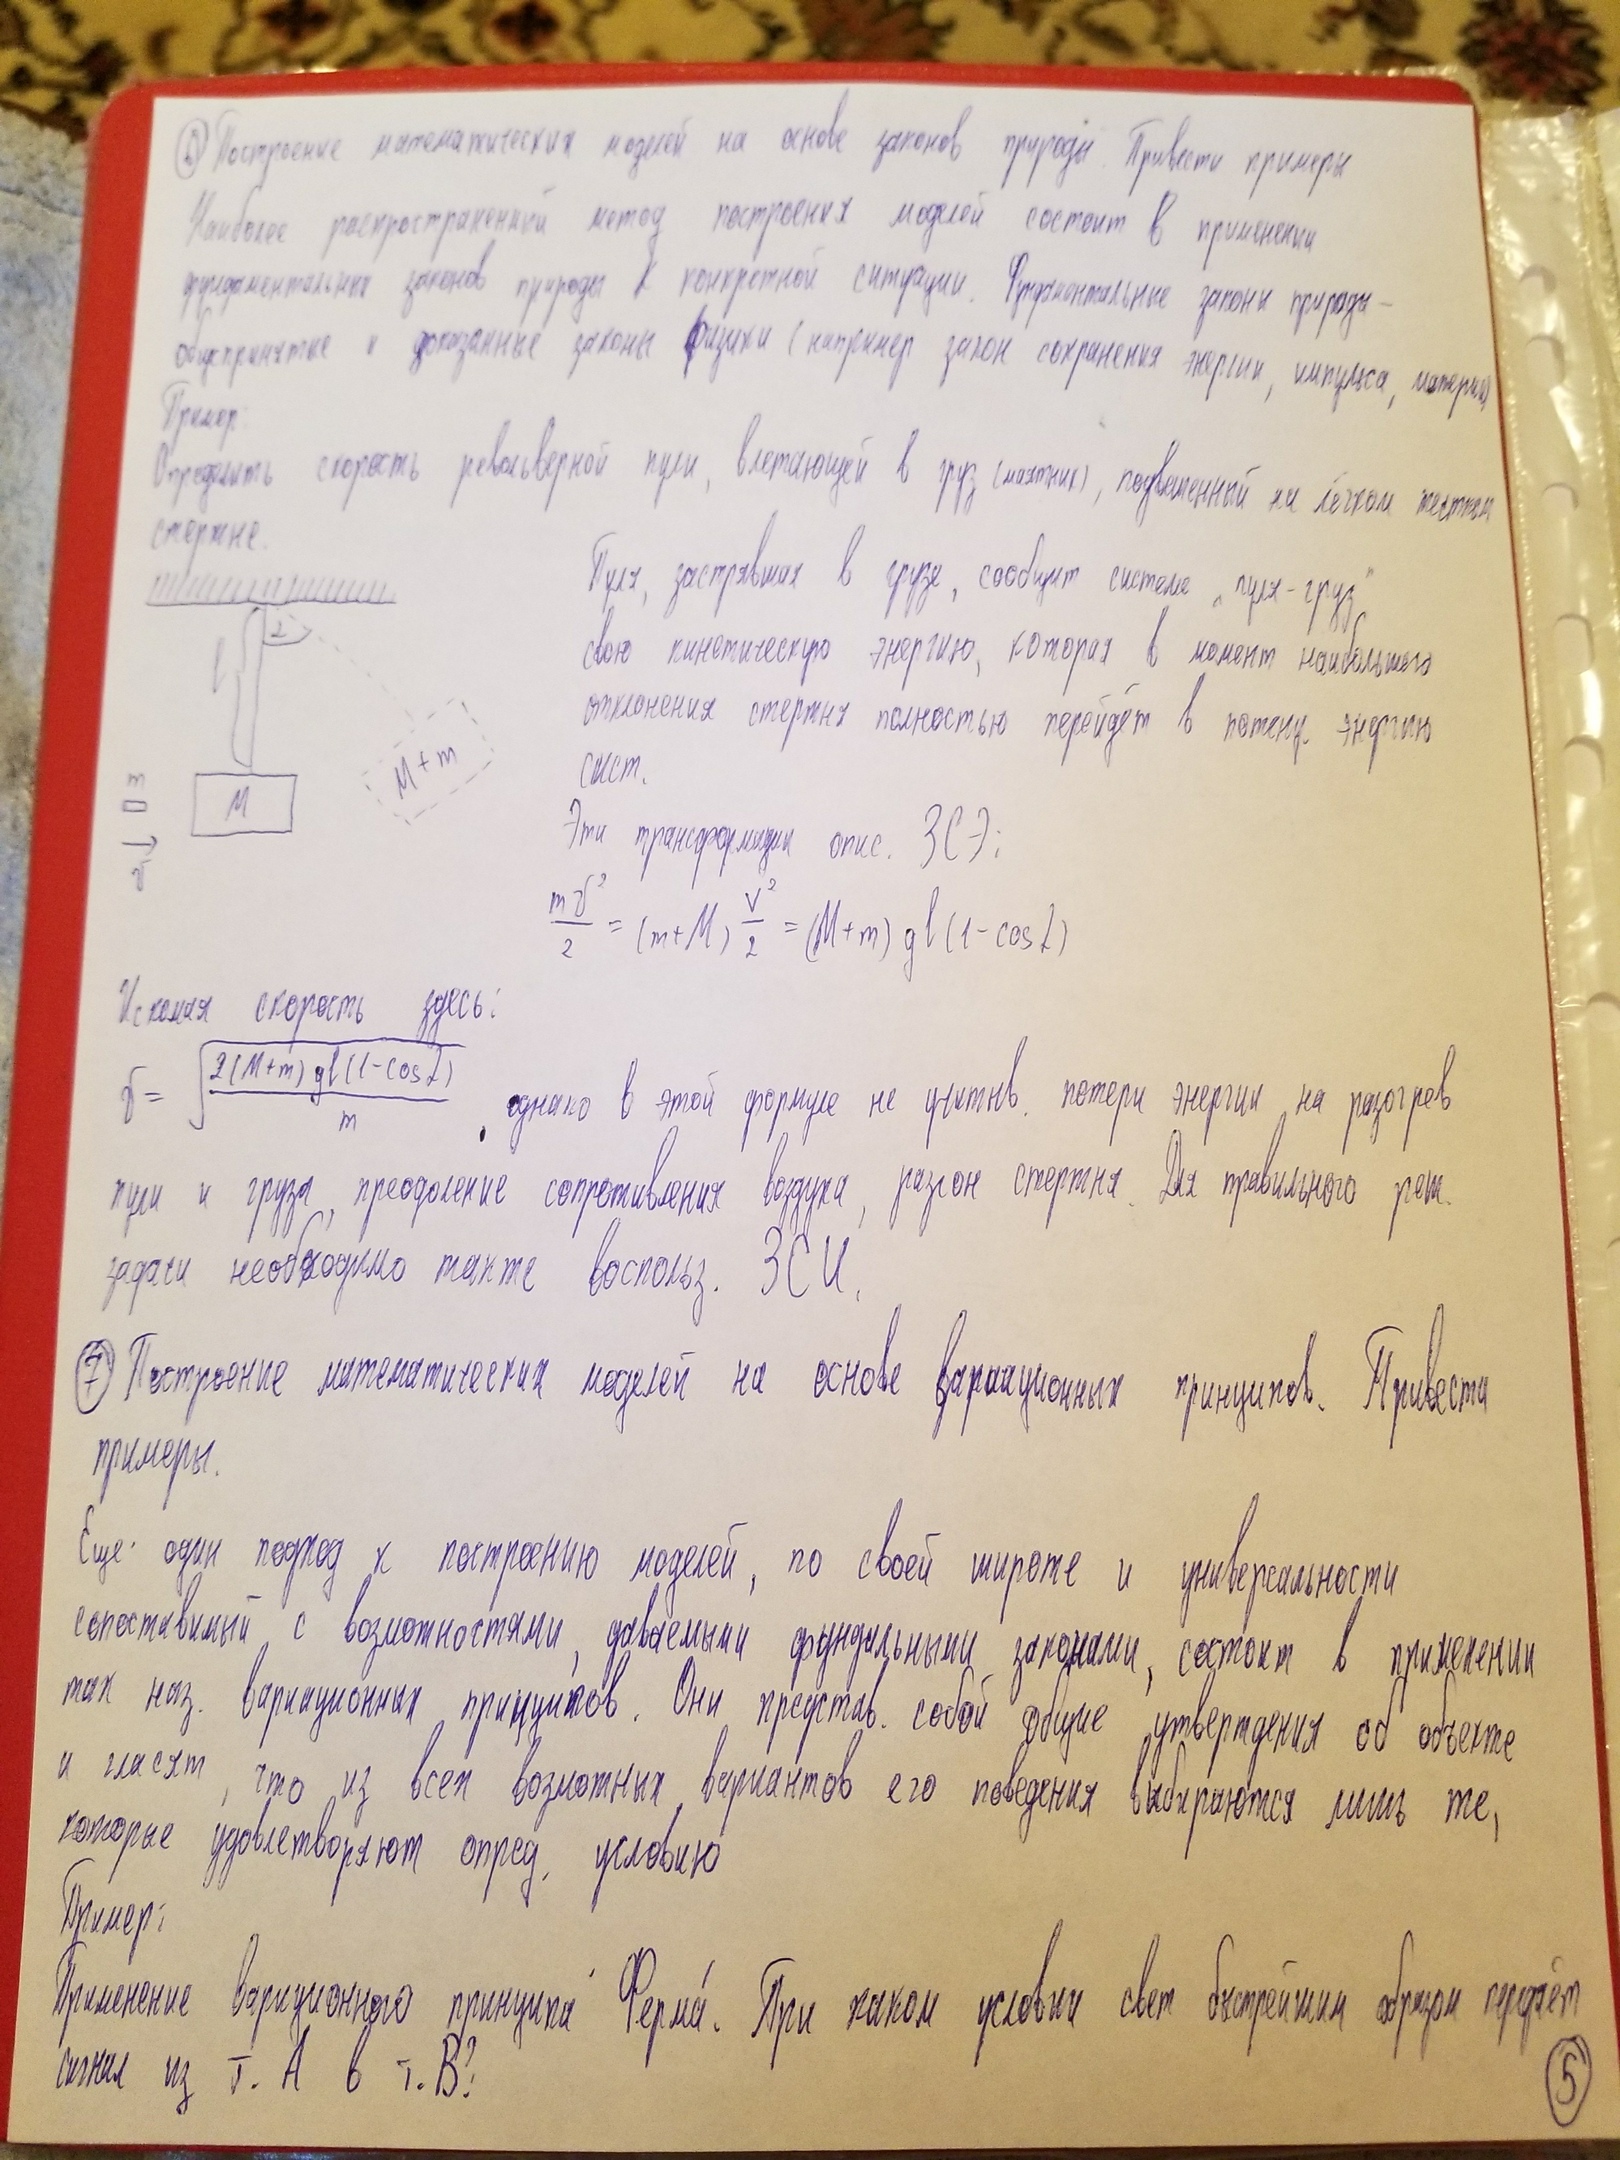 Построение математических моделей на основе законов природы. Привести примеры
Наиболее распространенный метод построения моделей состоит в применении
фундаментальных законов природы к конкретной ситуации. Фундаментальные законы природы -
общепринятые и доказанные законы физики (например закон сохранения энергии, импульса, материи)
Пример:
Определить скорость револьверной пули, влетающей в груз (маятник), подвешенный на лёгком жестком
стержне.
Пуля, застрявшая в грузе, сообщит системе „пуля-груз"
свою кинетическую энергию, которая в момент наибольшего
отклонения стержня полностью перейдёт в потенц. энергию
сист.
l
α
M
M+m
m
v
Эти трансформации опис. ЗСЭ:
mv²/2 = (m+M) V²/2 = (M+m) gl(1-cosα)
Искомая скорость здесь:
v = √(2(M+m)gl(1-cosα)/m), однако в этой формуле не учитыв. потери энергии на разогрев
пули и груза, преодоление сопротивления воздуха, разгон стержня. Для правильного реш.
задачи необходимо также воспольз. ЗСИ.
⑦ Построение математических моделей на основе вариационных принципов. Привести
примеры.
Еще один подход к построению моделей, по своей широте и универсальности
сопоставимый с возможностями, даваемыми фундальными законами, состоит в применении
так наз. вариационных принципов. Они представ. собой общие утверждения об объекте
и гласят, что из всех возможных вариантов его поведения выбираются лишь те,
которые удовлетворяют опред. условию
Пример:
Применение вариационного принципа Ферма́. При каком условии свет быстрейшим образом передаёт
сигнал из т. A в т. B?
⑤